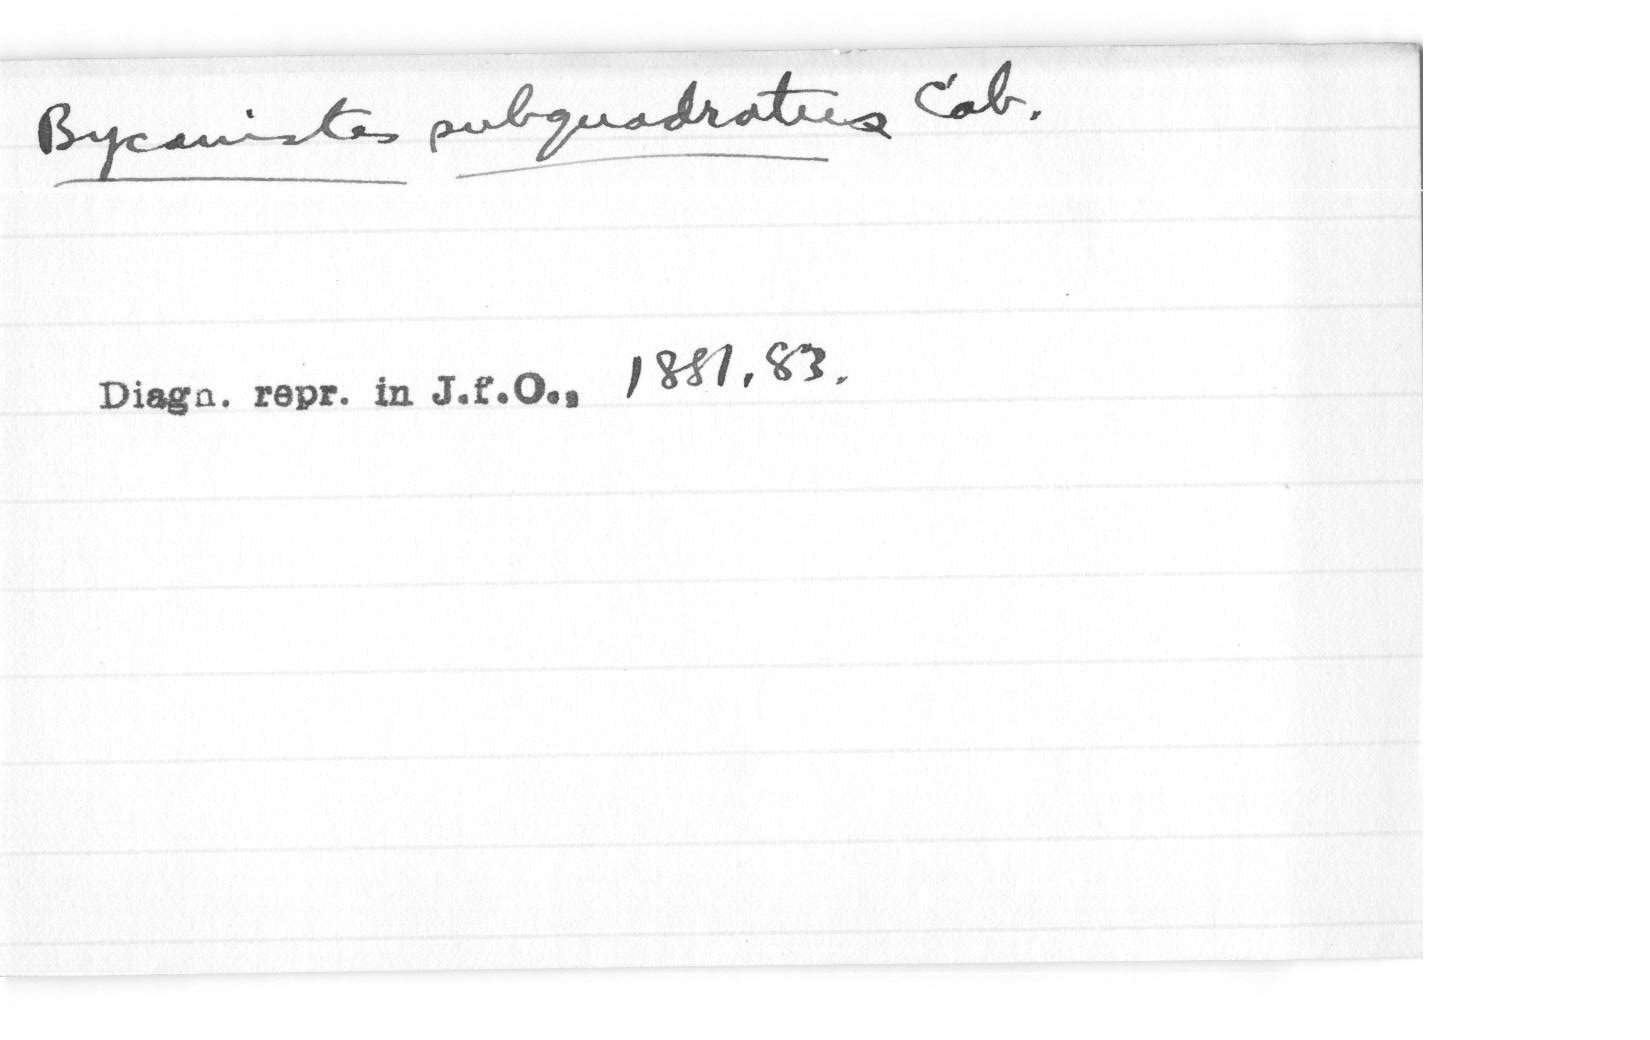 Bycanistes subquadratus Cab.
Diagn. repr. in J.f.O., 1881, 83.